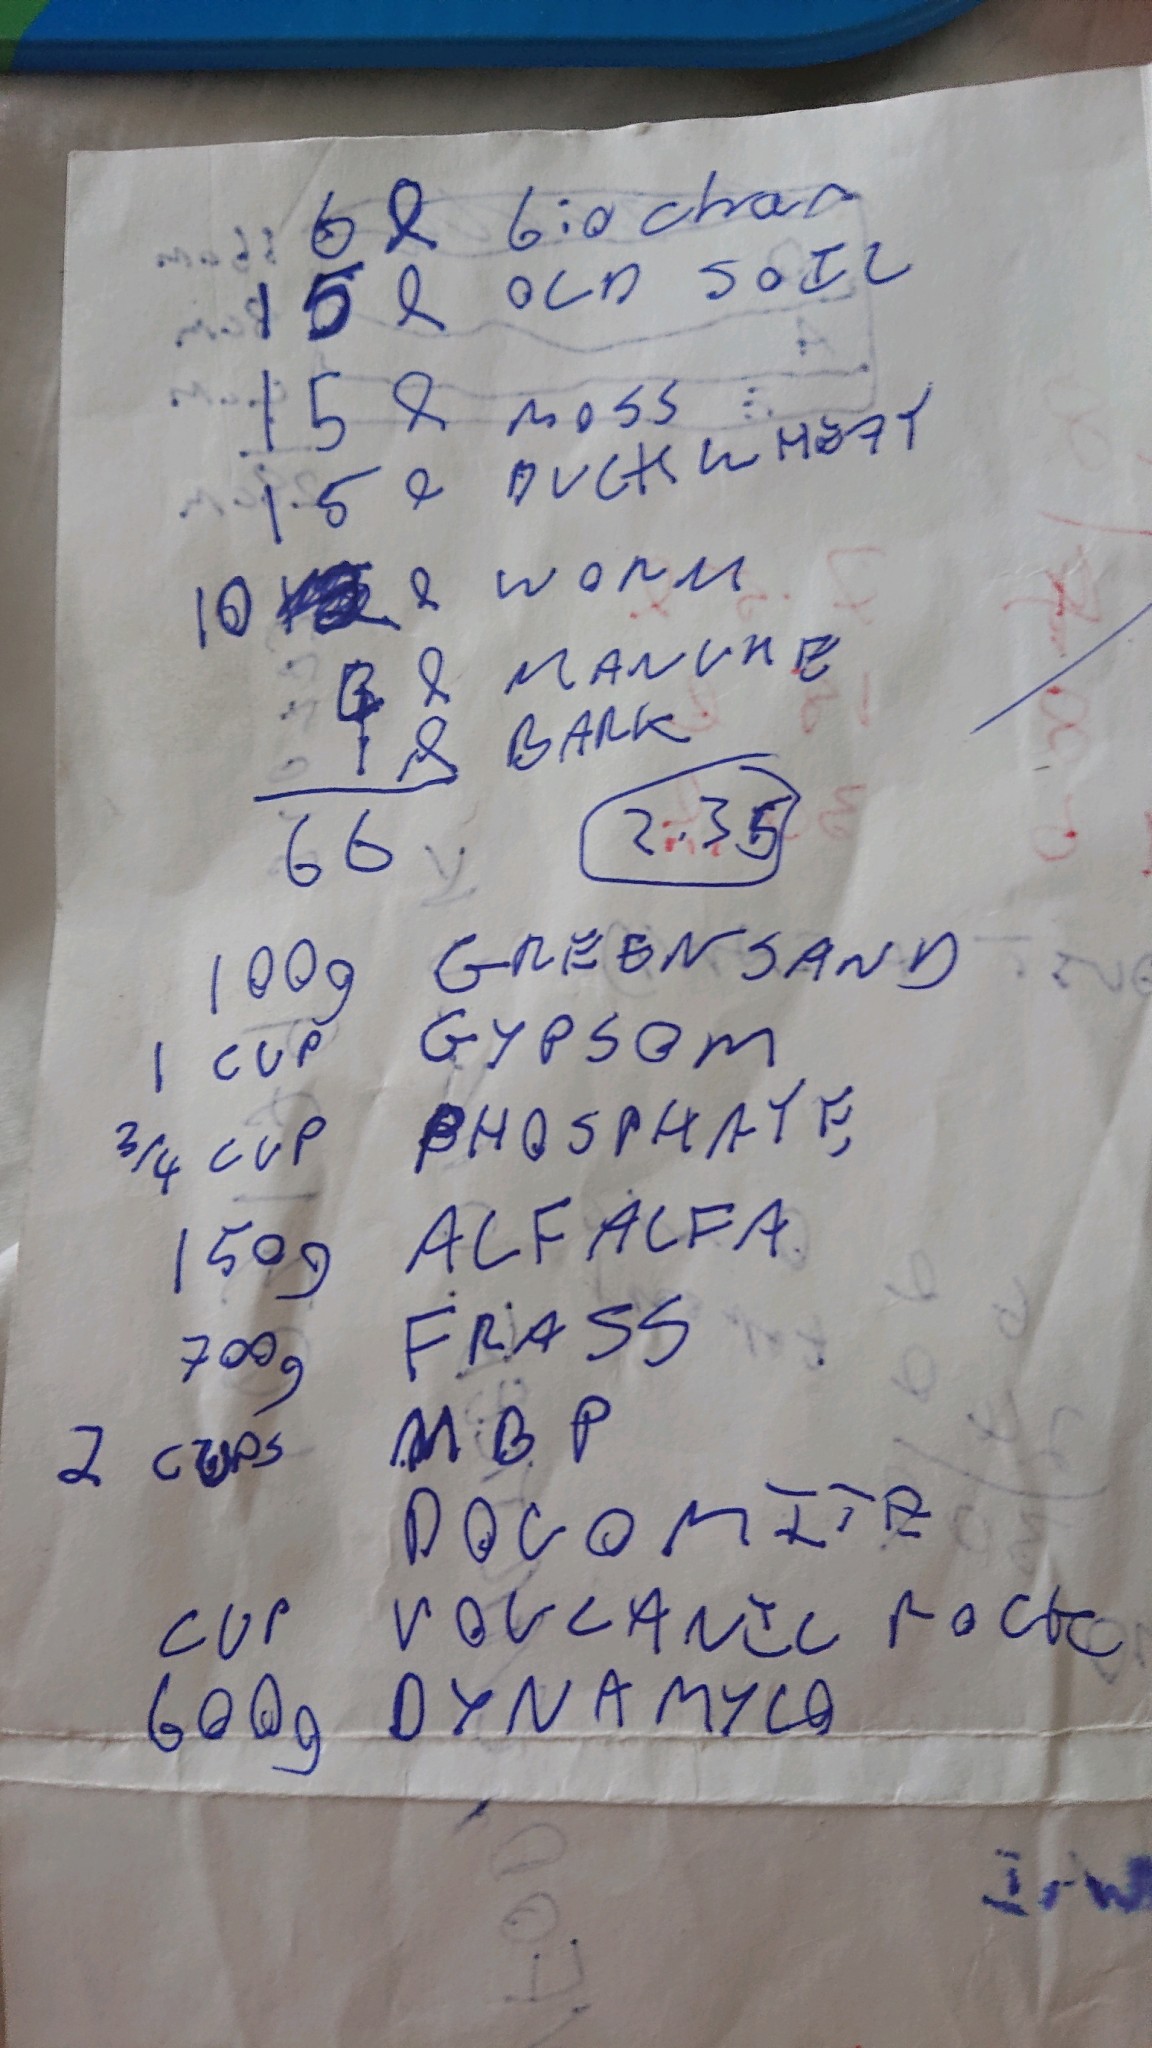 6 l biochar
15 l OLD SOIL
15 l MOSS
15 l BUCKWHEAT
10 l WORM
4 l MANURE
1 l BARK
66 2.35
100g GREENSAND
1 CUP GYPSOM
3/4 CUP PHOSPHATE
150g ALFALFA
700g FRASS
2 CUPS MBP
DOLOMITE
CUP VOLCANIC ROCK
600g DYNAMYCO